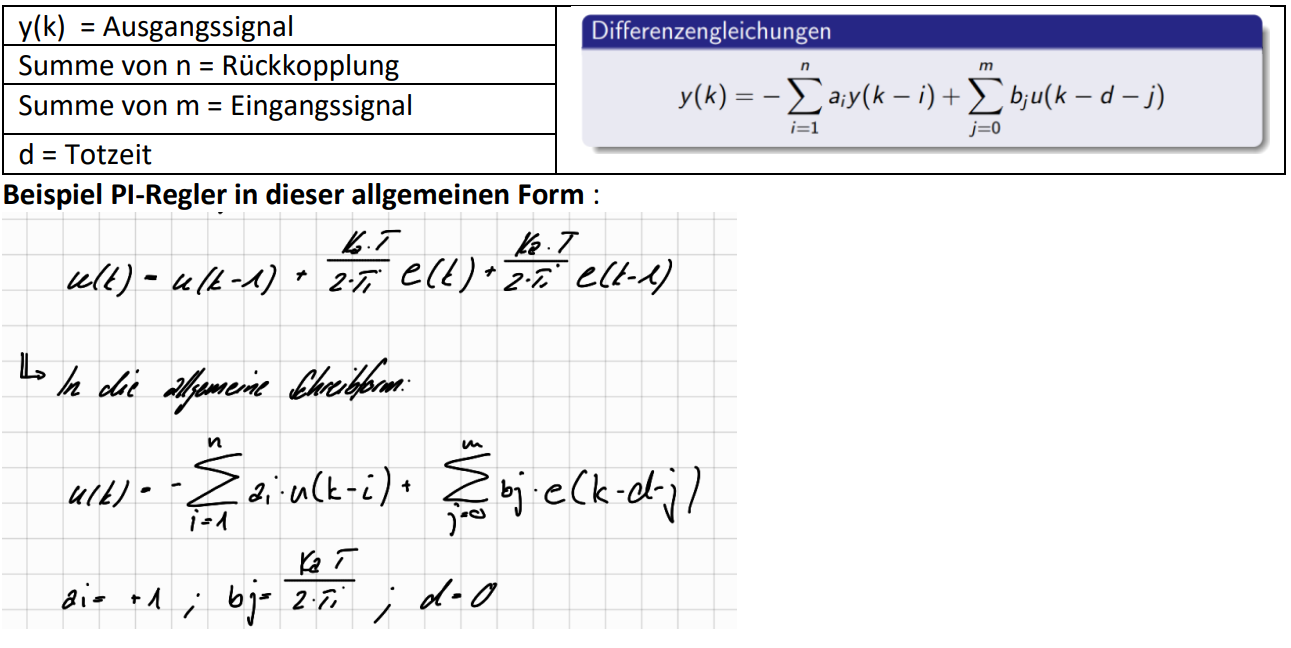 y(k) = Ausgangssignal
Summe von n = Rückkopplung
Summe von m = Eingangssignal
d = Totzeit
Differenzengleichungen
y(k) = − ∑_{i=1}^{n} a_i y(k − i) + ∑_{j=0}^{m} b_j u(k − d − j)
Beispiel PI-Regler in dieser allgemeinen Form :
u(k) = u(k-1) + K₂·T / 2·Tᵢ e(k) + K₂·T / 2·Tᵢ e(k-1)
↳ In die allgemeine Schreibform:
u(k) = - ∑_{i=1}^{n} a_i · u(k-i) + ∑_{j=0}^{m} b_j · e(k-d-j)
a_i = +1 ; b_j = K₂ T / 2·Tᵢ ; d = 0